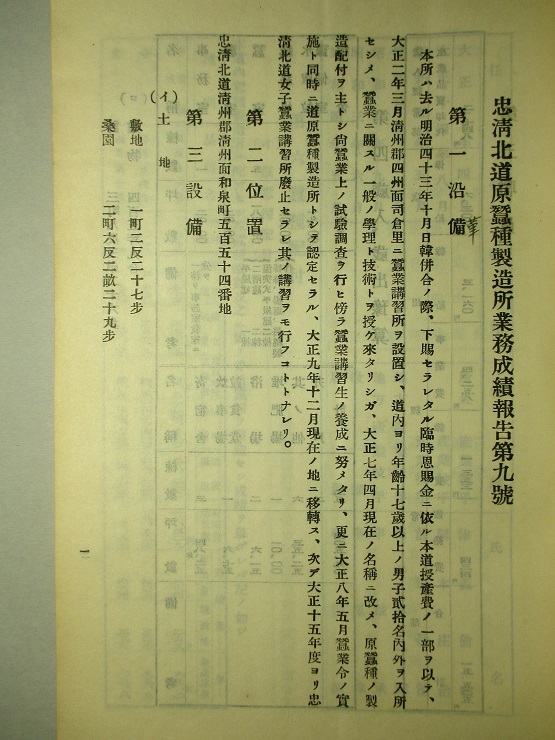 忠淸北道原蠶種製造所業務成績報吿第九號
第一沿備
革
本所ハ去ル明治四十三年十月日韓併合ノ際、下賜セラレタル臨時恩賜金ニ依ル本道授產費ノ一部ヲ以テ、
大正二年三月淸州郡四州面司倉里ニ蠶業講習所ヲ設置シ、道內ヨリ年齡十七歲以上ノ男子貳拾名內外ヲ入所
セシメ、蠶業ニ關スル一般ノ學理ト技術トヲ授ケ來タリシガ、大正七年四月現在ノ名稱ニ改メ、原蠶種ノ製
造配付ヲ主トシ尙蠶業上ノ試驗調査ヲ行ヒ傍ラ蠶業講習生ノ養成ニ努メタリ、更ニ大正八年五月蠶業令ノ實
施ト同時ニ道原蠶種製造所トシテ認定セラル、大正九年十二月現在ノ地ニ移轉ス、次デ大正十五年度ヨリ忠
淸北道女子蠶業講習所廢止セラレ其ノ講習ヲモ行フコトトナレリ。
第二位置
忠淸北道淸州郡淸州面和泉町五百五十四番地
第三設備
(イ)土地
敷地 一町二反二十七步
桑園 二町六反二畝二十九步
一